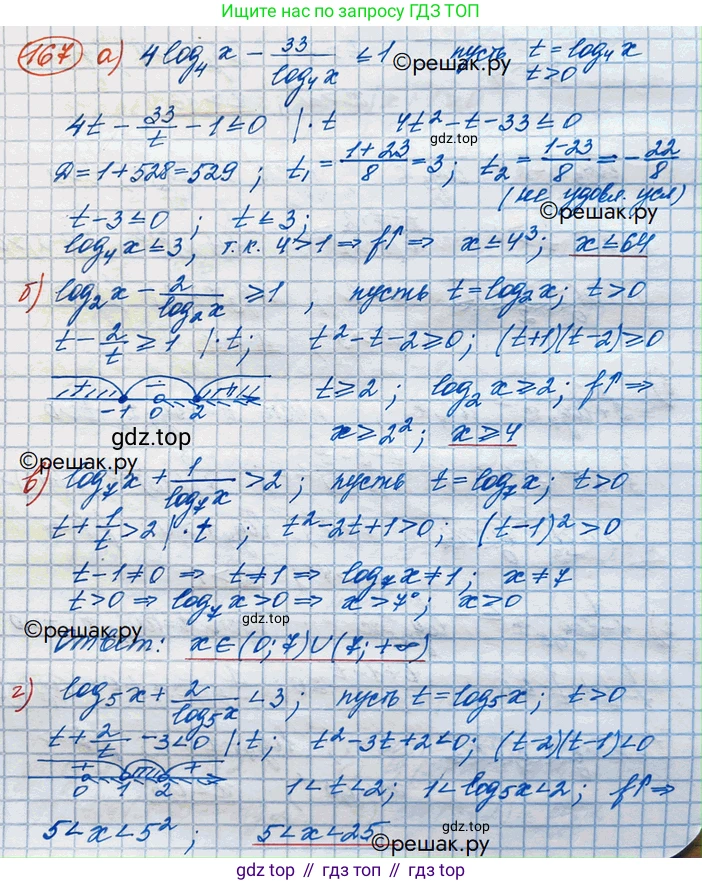 Ищите нас по запросу ГДЗ ТОП
167 а) 4log₄x − 33/log₄x ≤ 1 пусть t = log₄x
©решак.ру
t>0
4t − 33/t − 1 ≤ 0 |·t 4t² − t − 33 ≤ 0
gdz.top
D = 1+528 = 529 ; t₁ = (1+23)/8 = 3 ; t₂ = (1−23)/8 = −22/8
(не удовл. усл)
©решак.ру
t−3 ≤ 0 ; t ≤ 3;
log₄x ≤ 3; т.к. 4>1 ⇒ f↑ ⇒ x ≤ 4³; x ≤ 64
б) log₂x − 2/log₂x ≥ 1 , пусть t = log₂x; t>0
t − 2/t ≥ 1 |·t; t² − t − 2 ≥ 0; (t+1)(t−2) ≥ 0
+ − +
−1 0 2 t ≥ 2 ; log₂x ≥ 2; f↑ ⇒
gdz.top
x ≥ 2²; x ≥ 4
©решак.ру
в) log₇x + 1/log₇x > 2 ; пусть t = log₇x; t>0
t + 1/t > 2 |·t ; t² − 2t + 1 > 0; (t−1)² > 0
t−1 ≠ 0 ⇒ t ≠ 1 ⇒ log₇x ≠ 1; x ≠ 7
t>0 ⇒ log₇x > 0 ⇒ x > 7⁰; x > 0
gdz.top
©решак.ру
Ответ: x ∈ (0; 7) ∪ (7; +∞)
г) log₅x + 2/log₅x < 3; пусть t = log₅x; t>0
t + 2/t − 3 < 0 |·t; t² − 3t + 2 < 0; (t−2)(t−1) < 0
+ − +
0 1 2 1 < t < 2; 1 < log₅x < 2; f↑ ⇒
5 < x < 5² ; 5 < x < 25
©решак.ру
gdz top // гдз топ // gdz.top